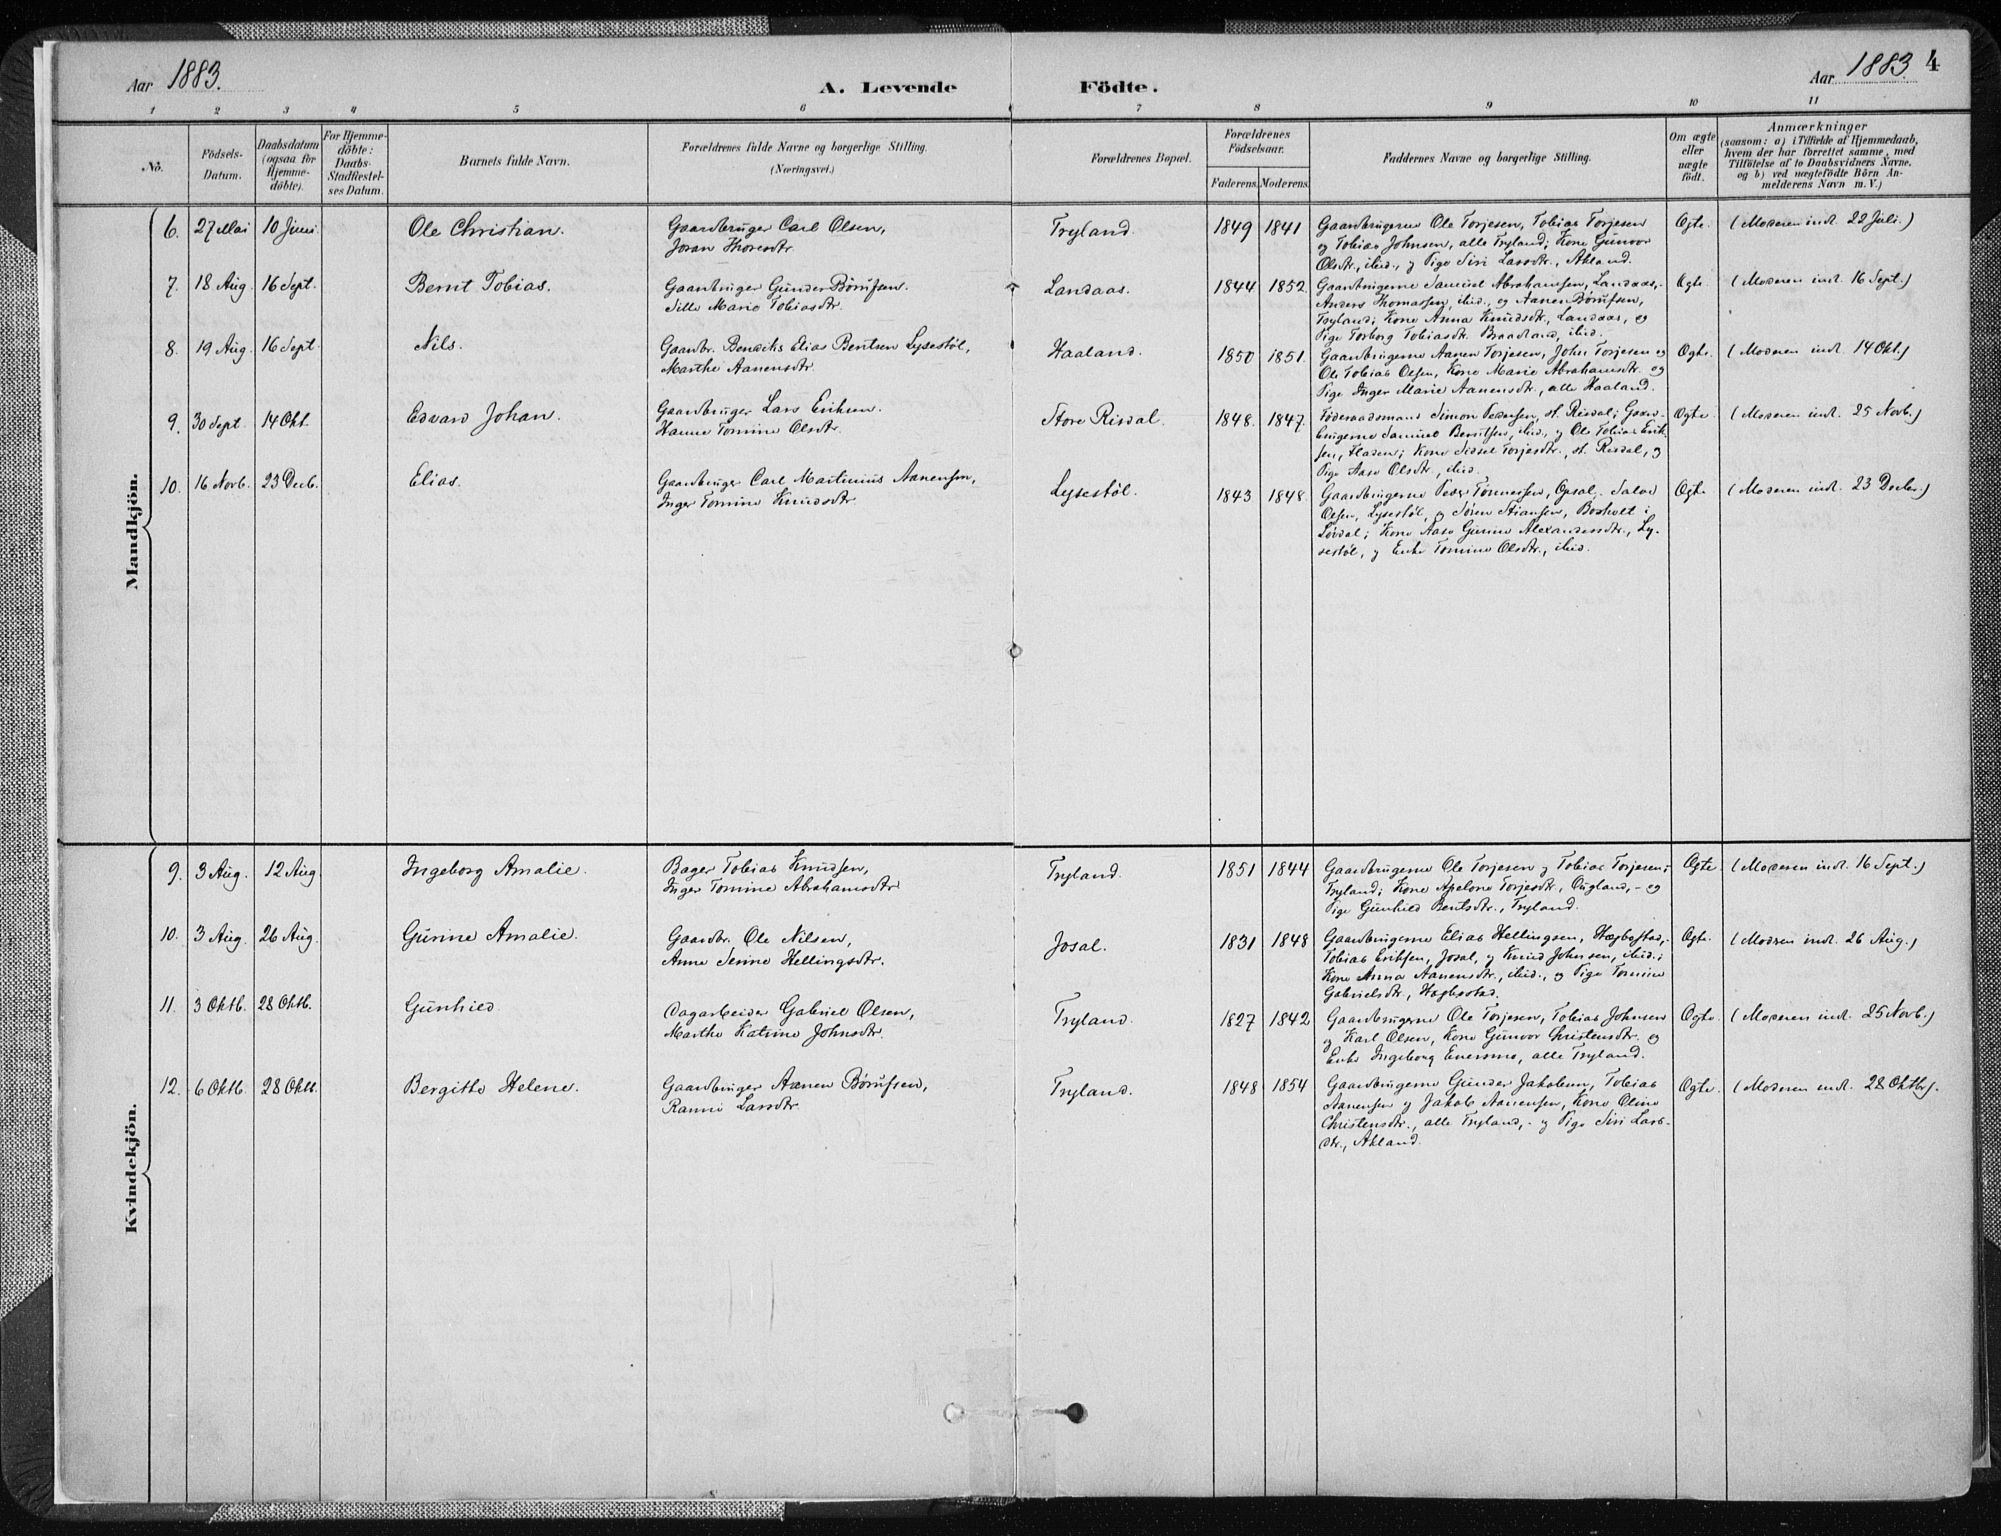 Aar 1883.
A. Levende Födte.
Aar 1883 4
1 2 3 4 5 6 7 8 9 10 11
No.
Födsels-
Datum.
Daabsdatum
(ogsaa for
Hjemme-
döbte).
For Hjemme-
döbte:
Daabs-
Stadfæstel-
ses Datum.
Barnets fulde Navn.
Forældrenes fulde Navne og borgerlige Stilling.
(Næringsvei.)
Forældrenes Bopæl.
Forældrenes
Födselsaar.
Faderens. Moderens.
Faddernes Navne og borgerlige Stilling.
Om ægte
eller
uægte
födt.
Anmærkninger
(saasom: a) i Tilfælde af Hjemmedaab,
hvem der har forrettet samme, med
Tilföielse af to Daabsvidners Navne,
og b) ved uægtefödte Börn An-
melderens Navn m. V.)
Mandkjön.
6. 27 Mai 10 Juni Ole Christian. Gaardbruger Carl Olsen,
Joran Thoresdtr.
Tryland. 1849 1841 Gaardbrugerne Ole Torjesen, Tobias Torjesen
og Tobias Johnsen, alle Tryland; Kone Gunvor
Olsdtr., ibid., og Pige Siri Larsdtr., Akland.
Ægte. (Moderen indl. 22 Juli.)
7. 18 Aug. 16 Sept. Bernt Tobias. Gaardbruger Gunder Börufsen.
Sille Marie Tobiasdtr.
Landaas. 1844 1852 Gaardbrugerne Samuel Abrahamsen, Landaas,
Anders Thomassen, ibid., og Aanen Börufsen,
Tryland; Kone Anna Knudsdtr., Landaas, og
Pige Torborg Tobiasdtr. Braadland, ibid.
Ægte. (Moderen indl. 16 Sept.)
8. 19 Aug. 16 Sept. Nils. Gaardbr. Bendiks Elias Bentsen Lysestöl,
Marthe Aanensdtr.
Haaland. 1850 1851. Gaardbrugerne Aanen Torjesen, John Torjesen og
Ole Tobias Olsen, Kone Marie Abrahamsdtr. og
Pige Inger Marie Aanensdtr., alle Haaland.
Ægte. (Moderen indl. 14 Okt.)
9. 30 Sept 14 Okt. Edvard Johan. Gaardbruger Lars Eriksen.
Hanne Tomine Olsdtr.
Store Risdal. 1848. 1847. Föderaadsmand Simon Pedersen, st. Risdal; Gaard-
brugerne Samuel Berntsen, ibid., og Ole Tobias Erik-
sen, Fladen; Kone Sidsel Torjesdtr., st. Risdal, og
Pige Aase Olsdtr., ibid.
Ægte (Moderen indl. 25 Novb.)
10. 16 Novb. 23 Decb. Elias. Gaardbruger Carl Martinius Aanensen,
Inger Tomine Knudsdtr
Lysestöl. 1843 1848. Gaardbrugerne Peder Tönnessen, Opsal, Salve
Olsen, Lysestöl, og Sören Stiansen, Bosholt i
Lövdal; Kone Aase Gurine Alexandersdtr., Ly-
sestöl, og Enke Tomine Olsdtr., ibid.
Ægte (Moderen indl. 23 Decbr.)
Kvindekjön.
9. 3 Aug. 12 Aug. Ingeborg Amalie. Bager Tobias Knudsen,
Inger Tomine Abrahamsdtr
Tryland. 1851 1844 Gaardbrugerne Ole Torjesen og Tobias Torjesen,
Tryland; Kone Apelone Torjesdtr., Ougland, og
Pige Gunhild Bentsdtr., Tryland.
Ægte (Moderen indl. 16 Sept.)
10. 3 Aug. 26 Aug. Gurine Amalie. Gaardbr. Ole Nilsen,
Anne Serine Hellingsdtr.
Josal. 1831 1848 Gaardbrugerne Elias Hellingsen, Hægbostad,
Tobias Eriksen, Josal, og Knud Johnsen, ibid.;
Kone Anna Aanensdtr., ibid., og Pige Tomine
Gabrielsdtr., Hægbostad.
Ægte. (Modren indl. 26 Aug.)
11. 3 Oktb. 28 Oktb. Gunhild Dagarbeider Gabriel Olsen,
Marthe Katrine Johnsdtr
Tryland. 1827 1842 Gaardbrugerne Ole Torjesen, Tobias Johnsen
og Karl Olsen, Kone Gunvor Christensdtr. og
Enke Ingeborg, alle Tryland.
Ægte. (Moderen indl. 25 Novb.)
12. 6 Oktb. 28 Oktb. Bergitte Helene. Gaardbruger Aanen Börufsen,
Larsdtr
Tryland. 1848 1854 Gaardbrugerne Gunder Jakobsen, Tobias
Aanensen og Jakob Aanensen, Kone Oline
Christensdtr., alle Tryland, og Pige Siri Lars-
dtr., Akland.
Ægte. (Moderen indl. 28 Oktbr).